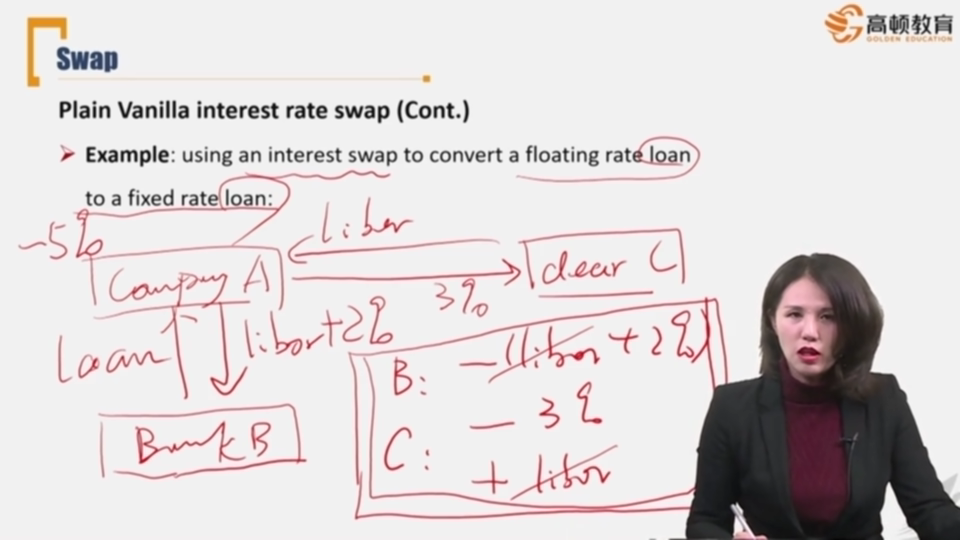 高顿教育
GOLDEN EDUCATION
Swap
Plain Vanilla interest rate swap (Cont.)
Example: using an interest swap to convert a floating rate loan
to a fixed rate loan:
-5%
libor
Company A
dear C
3%
loan
libor+2%
B: -(libor+2%)
- 3%
C:
+ libor
Bank B